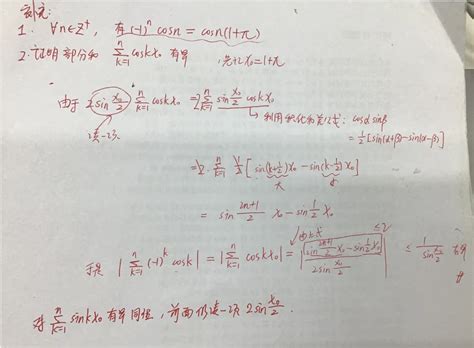 补充:
1. ∀n∈Z⁺, 有 (-1)ⁿ cosn = cosn(1+π)
2. 证明部分和 ∑_{k=1}^{n} coskx₀ 有界 , 先令x₀=1+π
由于 2sin x₀/2 ∑_{k=1}^{n} coskx₀ = 2∑_{k=1}^{n} sin x₀/2 coskx₀
凑一次
利用积化和差公式: cosα sinβ
= 1/2[sin(α+β)-sin(α-β)]
= 2·∑_{k=1}^{n} 1/2 [sin(k+1/2)x₀ - sin(k-1/2)x₀]
= sin (2n+1)/2 x₀ - sin 1/2 x₀
于是 |∑_{k=1}^{n} (-1)ᵏ cosk| = |∑_{k=1}^{n} coskx₀| = |(sin (2n+1)/2 x₀ - sin 1/2 x₀)/(2sin x₀/2)| ≤ 1/(sin x₀/2) 有界
由上式
≤2
对 ∑_{k=1}^{n} sinkx₀ 有界同理, 前面仍凑一次 2sin x₀/2.